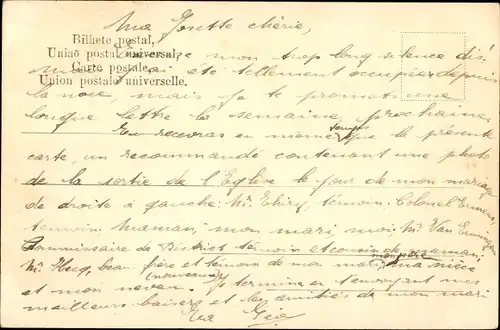 Bilhete postal,
União postal universal,
Carte postale,
Union postale universelle.
Ma Josette chérie,
Excuse mon trop long silence dis!
Mais j'ai été tellement occupée depuis
la noce, mais je te promets une
longue lettre la semaine prochaine.
Tu recevras en même temps que la présente
carte, un recommandé contenant une photo
de la sortie de l'Eglise le jour de mon mariage
de droite à gauche: Mr. témoin. Colonel
témoin Maman, mon mari, moi, Mr. Van
Commissaire de District témoin et cousin de maman,
mon père
Mr. beau-frère et témoin de mon mari, ma nièce
(nouveaux)
et mon neveu. Je termine en t'envoyant mes
meilleurs baisers et les amitiés de mon mari
Ta